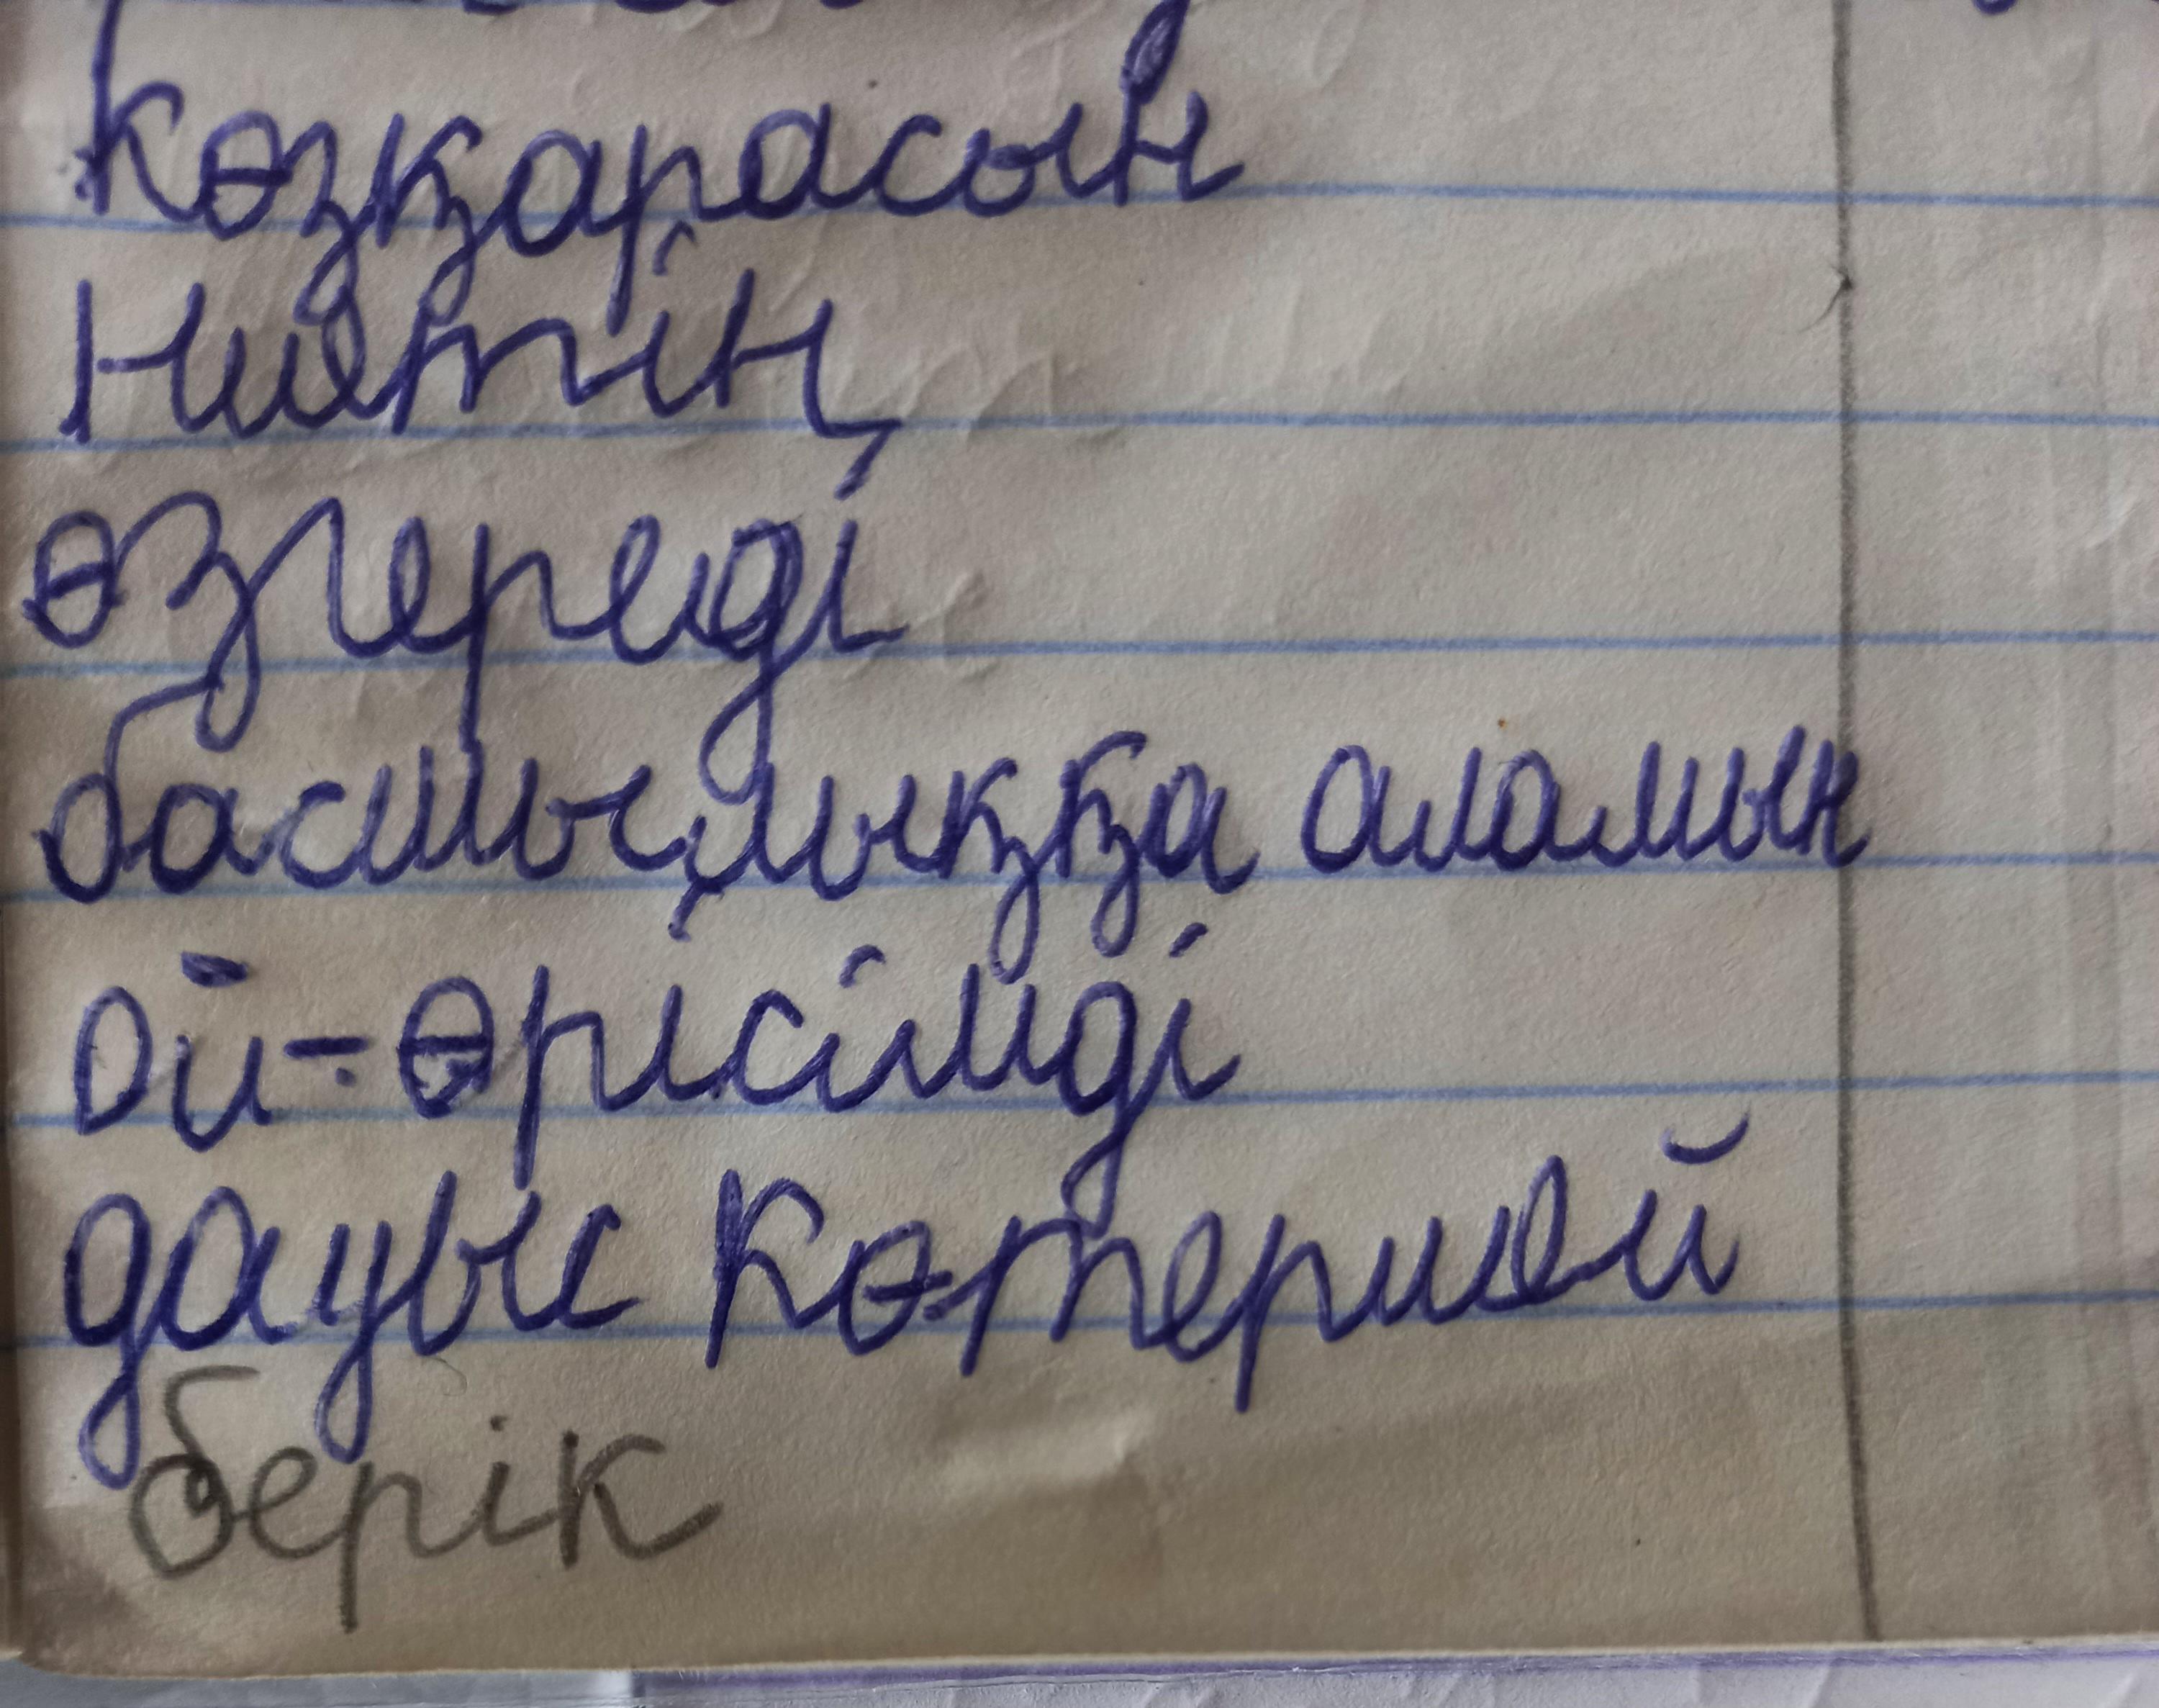 көзқарасын
ниетің
өзгереді
басшылыққа аламын
ой-өрісімді
дауыс көтермей
берік